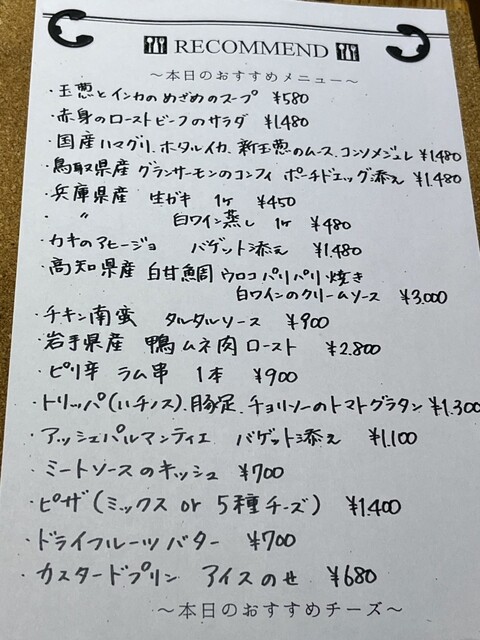 RECOMMEND
～本日のおすすめメニュー～
・玉葱とインカのめざめのスープ ¥580
・赤身のローストビーフのサラダ ¥1,480
・国産ハマグリ、ホタルイカ、新玉葱のムース、コンソメジュレ ¥1,480
・鳥取県産 グランサーモンのコンフィ ポーチドエッグ添え ¥1,480
・兵庫県産 生ガキ 1ヶ ¥450
・ 〃 白ワイン蒸し 1ヶ ¥480
・カキのアヒージョ バゲット添え ¥1,480
・高知県産 白甘鯛 ウロコパリパリ焼き
白ワインのクリームソース ¥3,000
・チキン南蛮 タルタルソース ¥900
・岩手県産 鴨ムネ肉ロースト ¥2,800
・ピリ辛 ラム串 1本 ¥900
・トリッパ(ハチノス)、豚足、チョリソーのトマトグラタン ¥1,300
・アッシェパルマンティエ バゲット添え ¥1,100
・ミートソースのキッシュ ¥700
・ピザ(ミックス or 5種チーズ) ¥1,400
・ドライフルーツバター ¥700
・カスタードプリン アイスのせ ¥680
～本日のおすすめチーズ～